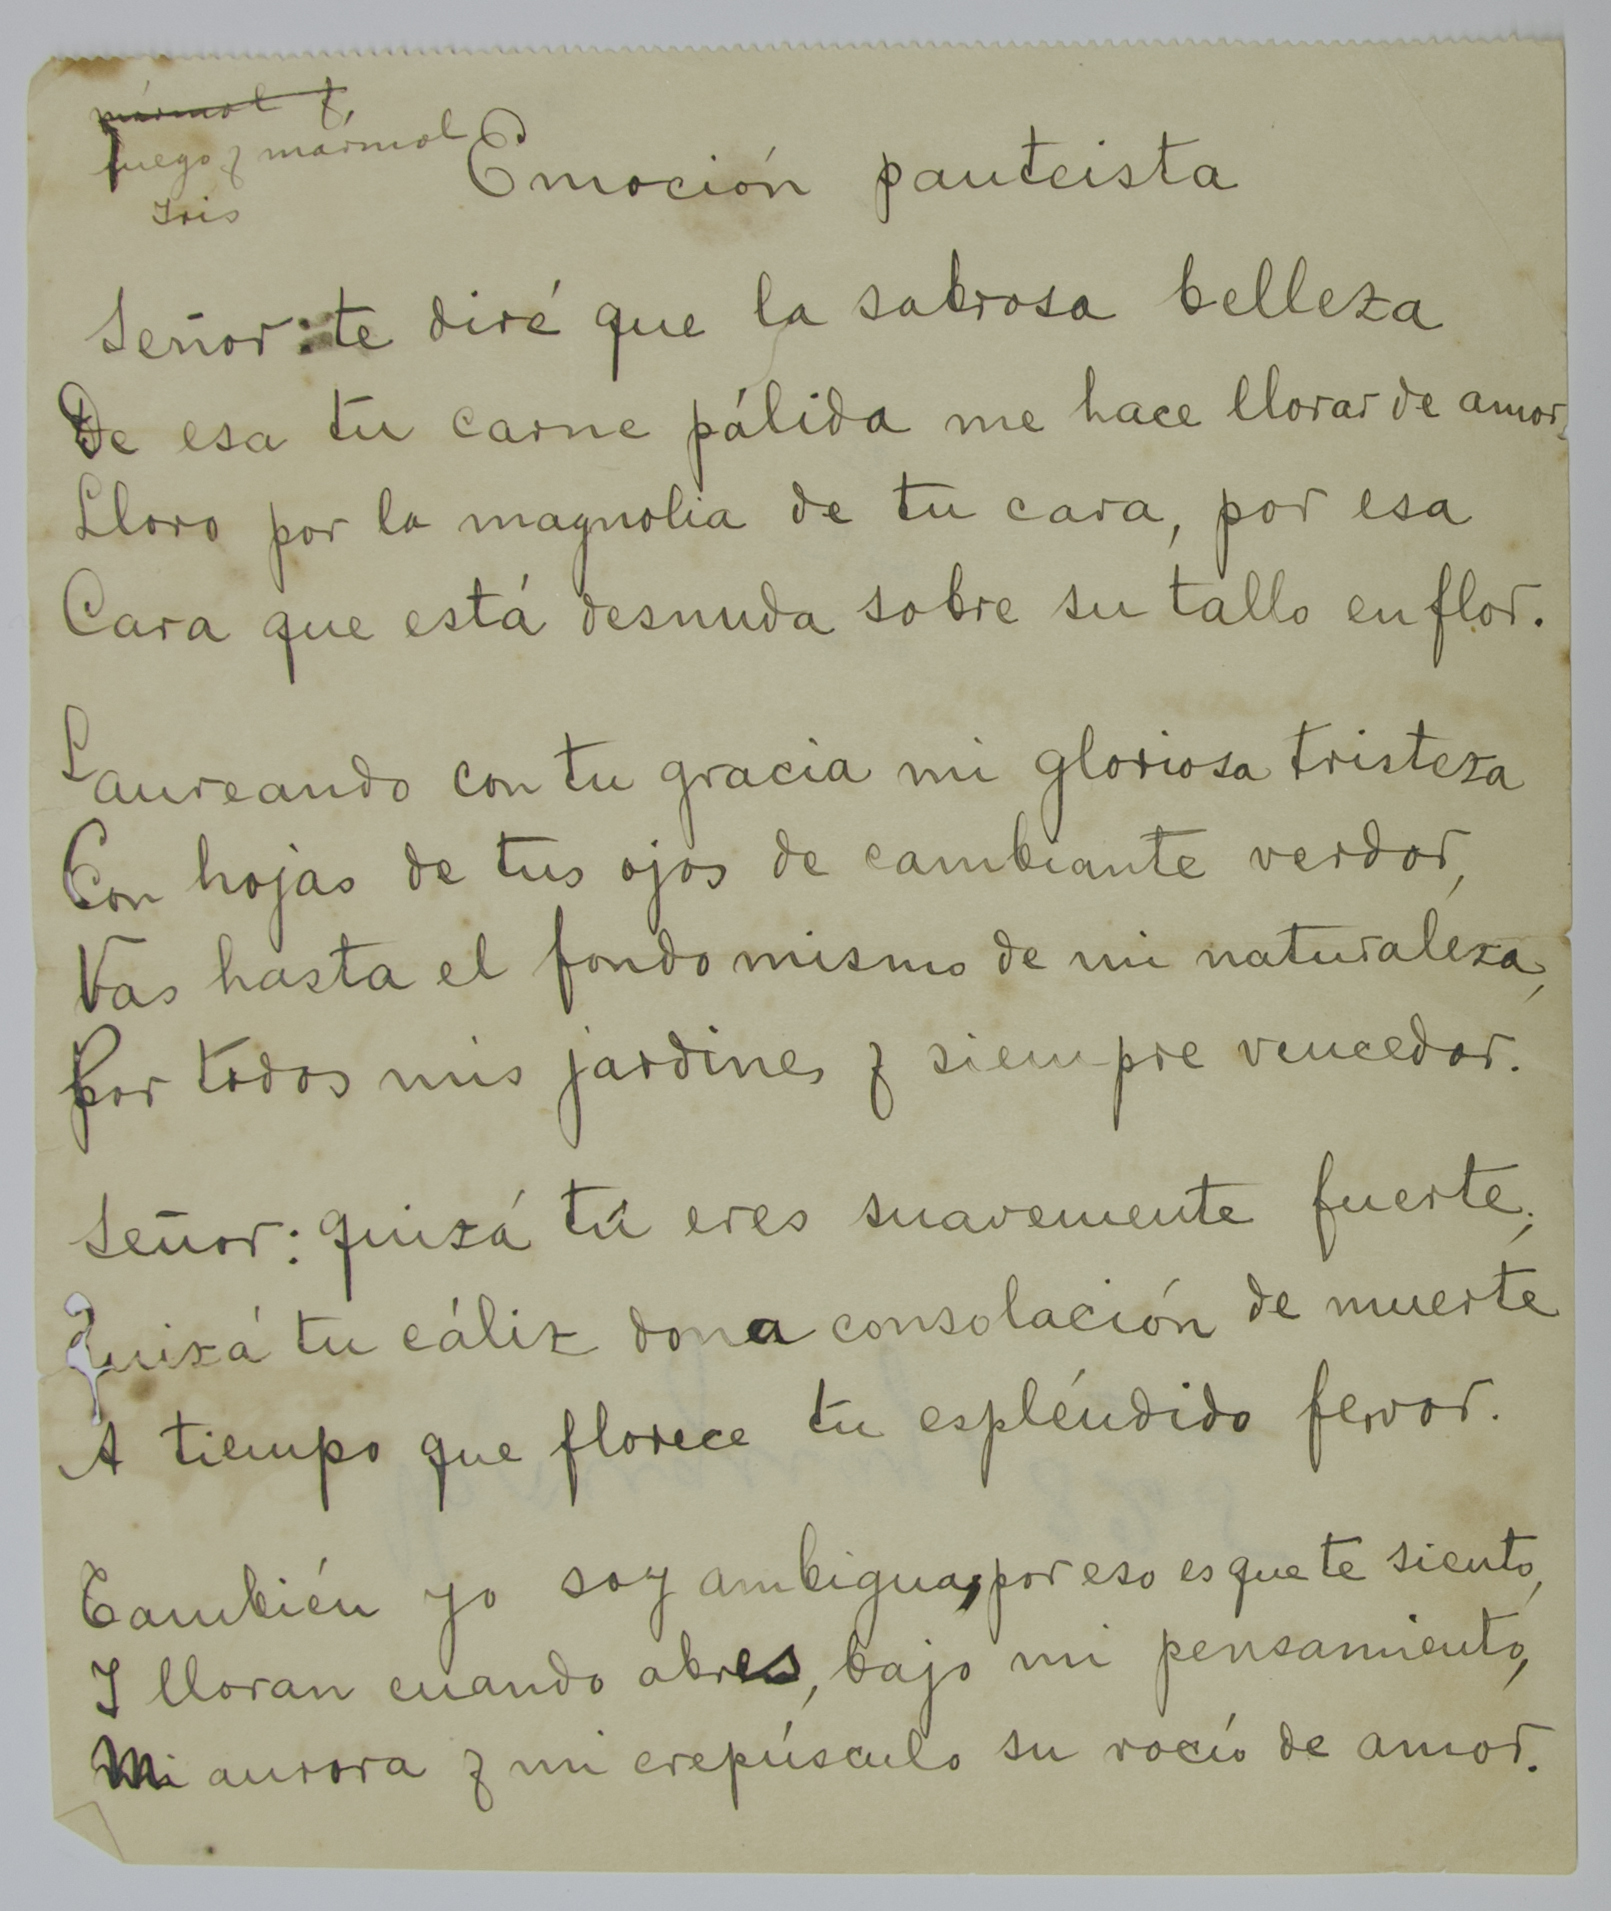 mármol y
fuego y mármol
Iris
Emoción panteista
Señor: te diré que la sabrosa belleza
De esa tu carne pálida me hace llorar de amor,
Lloro por la magnolia de tu cara, por esa
Cara que está desnuda sobre su tallo en flor.
Laureando con tu gracia mi gloriosa tristeza
Con hojas de tus ojos de cambiante verdor,
Vas hasta el fondo mismo de mi naturaleza,
Por todos mis jardines y siempre vencedor.
Señor: quizá tú eres suavemente fuerte;
Quizá tu cáliz dona consolación de muerte
A tiempo que florece tu espléndido fervor.
También yo soy ambigua, por eso es que te siento,
I lloran cuando abres, bajo mi pensamiento,
Mi aurora y mi crepúsculo su rocío de amor.